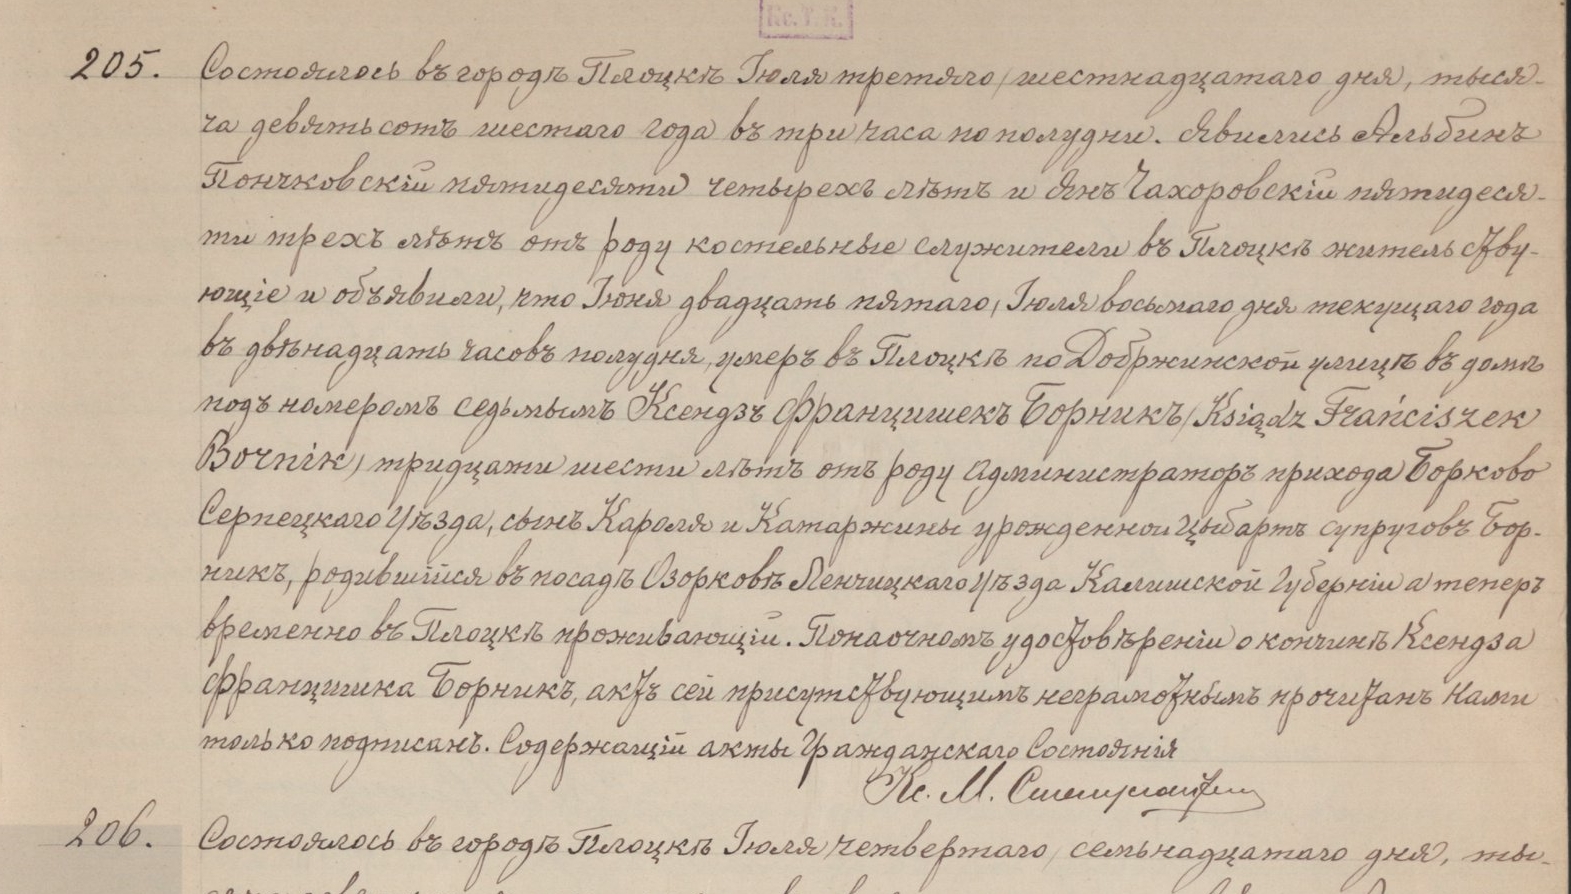 Кс. Т. К.
205. Состоялось въ городѣ Плоцкѣ Іюля третяго / шестнадцатаго дня, тыся-
ча девятьсотъ шестаго года въ три часа по полудни. Явились Альбинъ
Пончковскій пятидесяти четырехъ лѣтъ и Янъ Чахоровскій пятидеся-
ти трехъ лѣтъ отъ роду костельные служители въ Плоцкѣ жительству-
ющіе и объявили, что Іюня двадцать пятаго / Іюля восьмаго дня текущаго года
въ двѣнадцать часовъ полудня, умеръ въ Плоцкѣ по Добржинской улицѣ въ домѣ
подъ номеромъ седьмымъ Ксендзъ Францишекъ Борникъ / Ksiądz Frańciszek
Bornik / тридцати шести лѣтъ отъ роду администраторъ прихода Борково
Серпецкаго Уѣзда, сынъ Кароля и Катаржины урожденной Цыбартъ супруговъ Бор-
никъ, родившійся въ посадѣ Озорковѣ Ленчицкаго Уѣзда Калишской Губерніи а теперъ
временно въ Плоцкѣ проживающій. По наочномъ удостовѣреніи о кончинѣ Ксендза
Францишка Борникъ, актъ сей присутствующимъ неграмотнымъ прочитанъ Нами
только подписанъ. Содержащій акты Гражданскаго Состоянія
Кс. М.
206. Состоялось въ городѣ Плоцкѣ Іюля четвертаго / семьнадцатаго дня, ты-